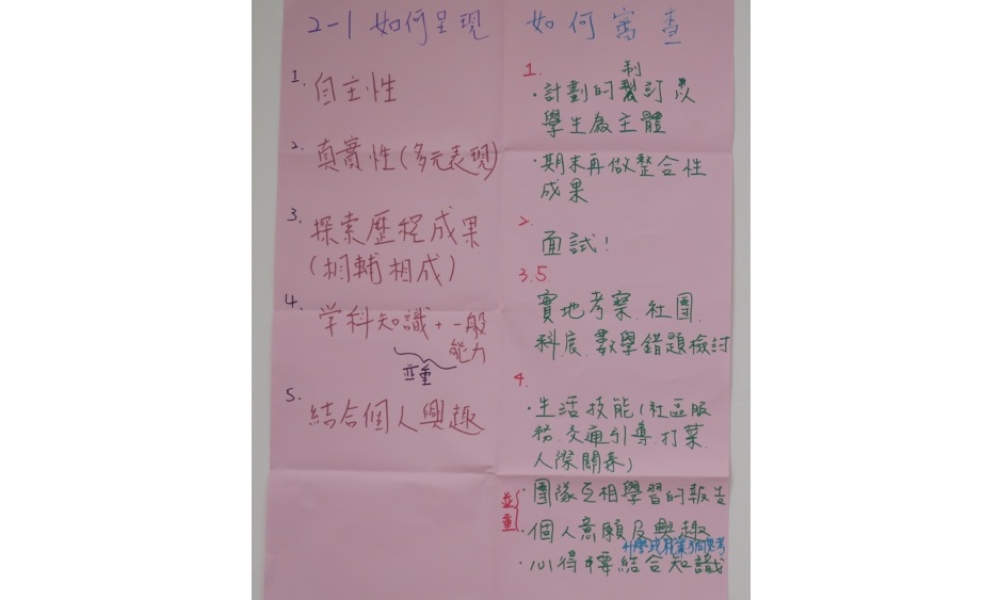 2-1 如何呈現
1. 自主性
2. 真實性(多元表現)
3. 探索歷程成果
(相輔相成)
4. 学科知識+一般
能力
並重
5. 結合個人興趣
如何審查
1.
制
·計劃的訂以
學生為主體
·期末再做整合性
成果
2.
面試!
3.5
實地考察.社團.
科展.數學錯題檢討
4.
·生活技能(社區服
務.交通引導.打菜.
人際關係)
並重
·團隊互相學習的報告
·個人意願及興趣
升學或就業
·心得要結合知識